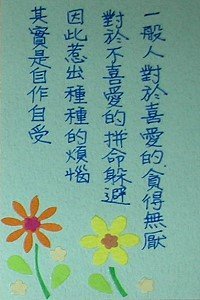 一般人對於喜愛的貪得無厭
對於不喜愛的拼命躲避
因此惹出種種的煩惱
其實是自作自受